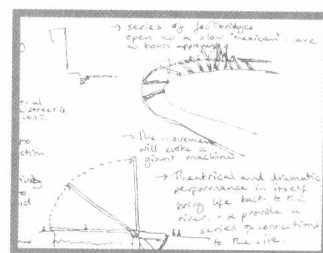 → series of footbridges
open in a slow "mexican" wave
as boats approach
→ The movement
will evoke a
giant machine
→ Theatrical and dramatic
performance in itself
bring life back to the
river. - & provide a
series of connections
to the site.